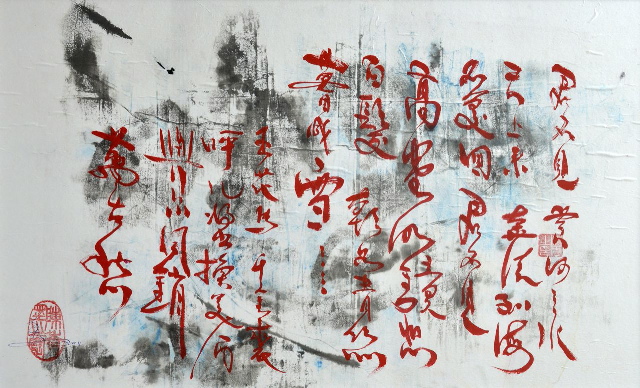 君不見黃河之水
天上来奔流到海
不復回君不見
高堂明鏡悲
白髮朝如青絲
暮成雪……
五花馬千金裘
呼兒將出換美酒
與尔同銷
萬古愁